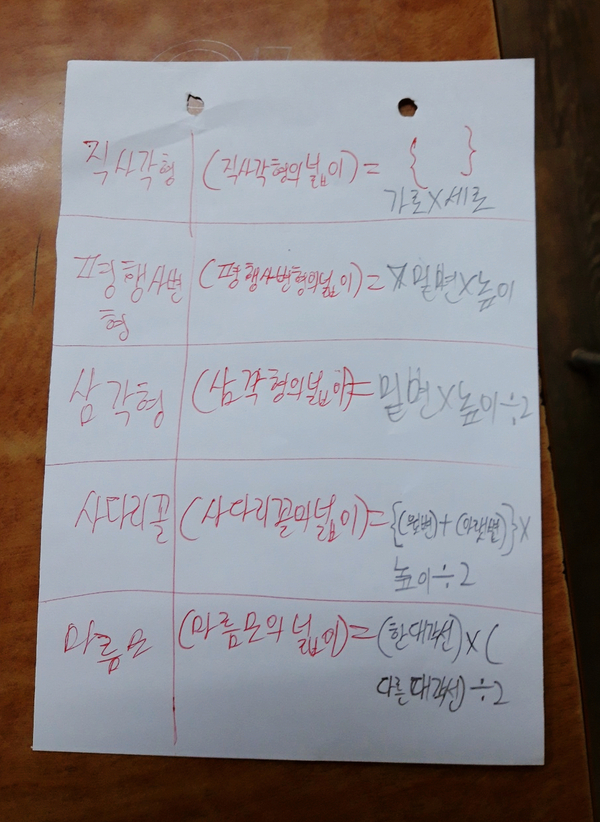 직사각형 (직사각형의 넓이)= { }
가로X세로
평행사변 (평행사변형의 넓이)= X 밑면X높이
형
삼각형 (삼각형의 넓이)= 밑면X높이÷2
사다리꼴 (사다리꼴의 넓이)= {(윗변)+(아랫변)}X
높이÷2
마름모 (마름모의 넓이)= (한대각선)X(
다른대각선)÷2